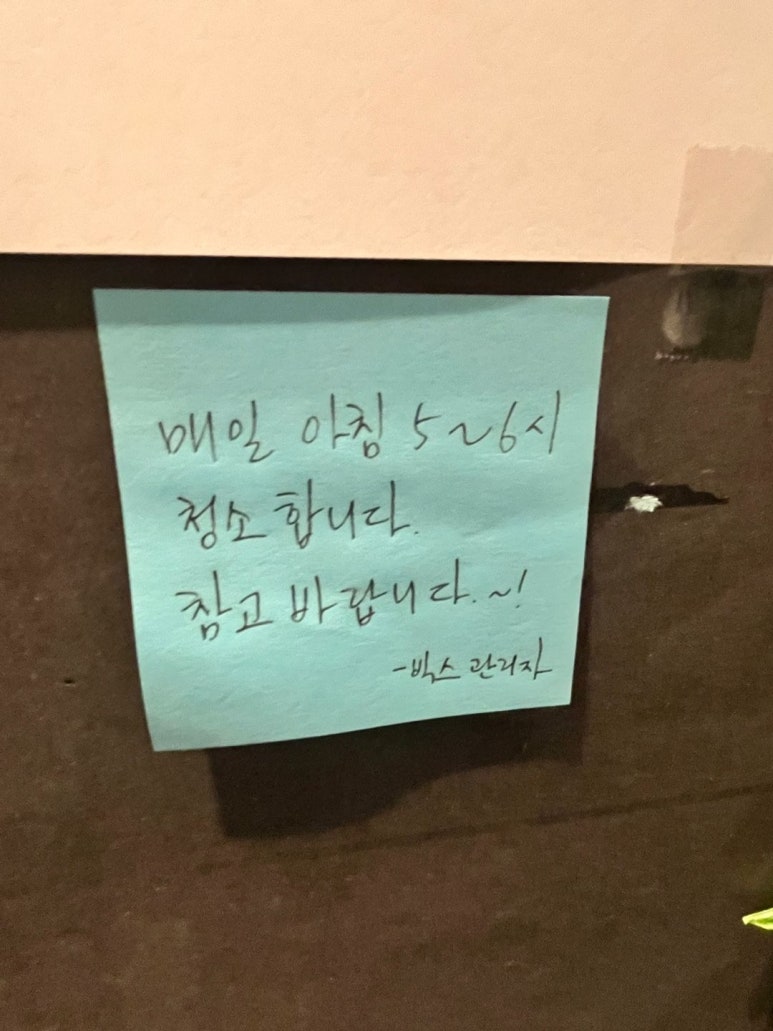 매일 아침 5~6시
청소합니다.
참고 바랍니다.~!
-빅스 관리자